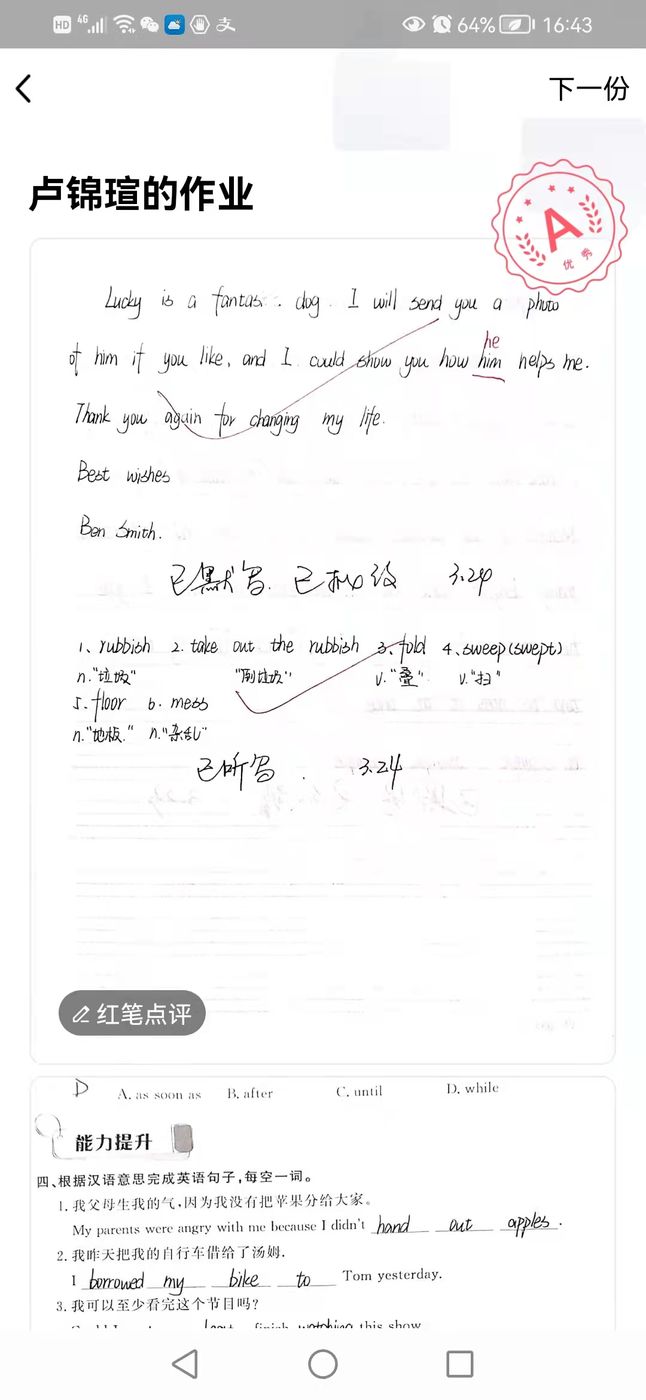 HD 4G 支 64% 16:43
下一份
卢锦瑄的作业
A
优秀
Lucky is a fantas dog. I will send you a photo
he
of him if you like, and I could show you how him helps me.
Thank you again for changing my life.
Best wishes
Ben Smith.
已默写. 已批改 3.24
1、rubbish 2. take out the rubbish 3、fold 4、sweep(swept)
n."垃圾" "倒垃圾" v."叠" v."扫"
5. floor 6. mess
n."地板." n."杂乱"
已听写. 3.24
红笔点评
D A. as soon as B. after C. until D. while
能力提升
四、根据汉语意思完成英语句子,每空一词。
1. 我父母生我的气,因为我没有把苹果分给大家。
My parents were angry with me because I didn't hand out apples.
2. 我昨天把我的自行车借给了汤姆.
I borrowed my bike to Tom yesterday.
3. 我可以至少看完这个节目吗?
least finish watching this show